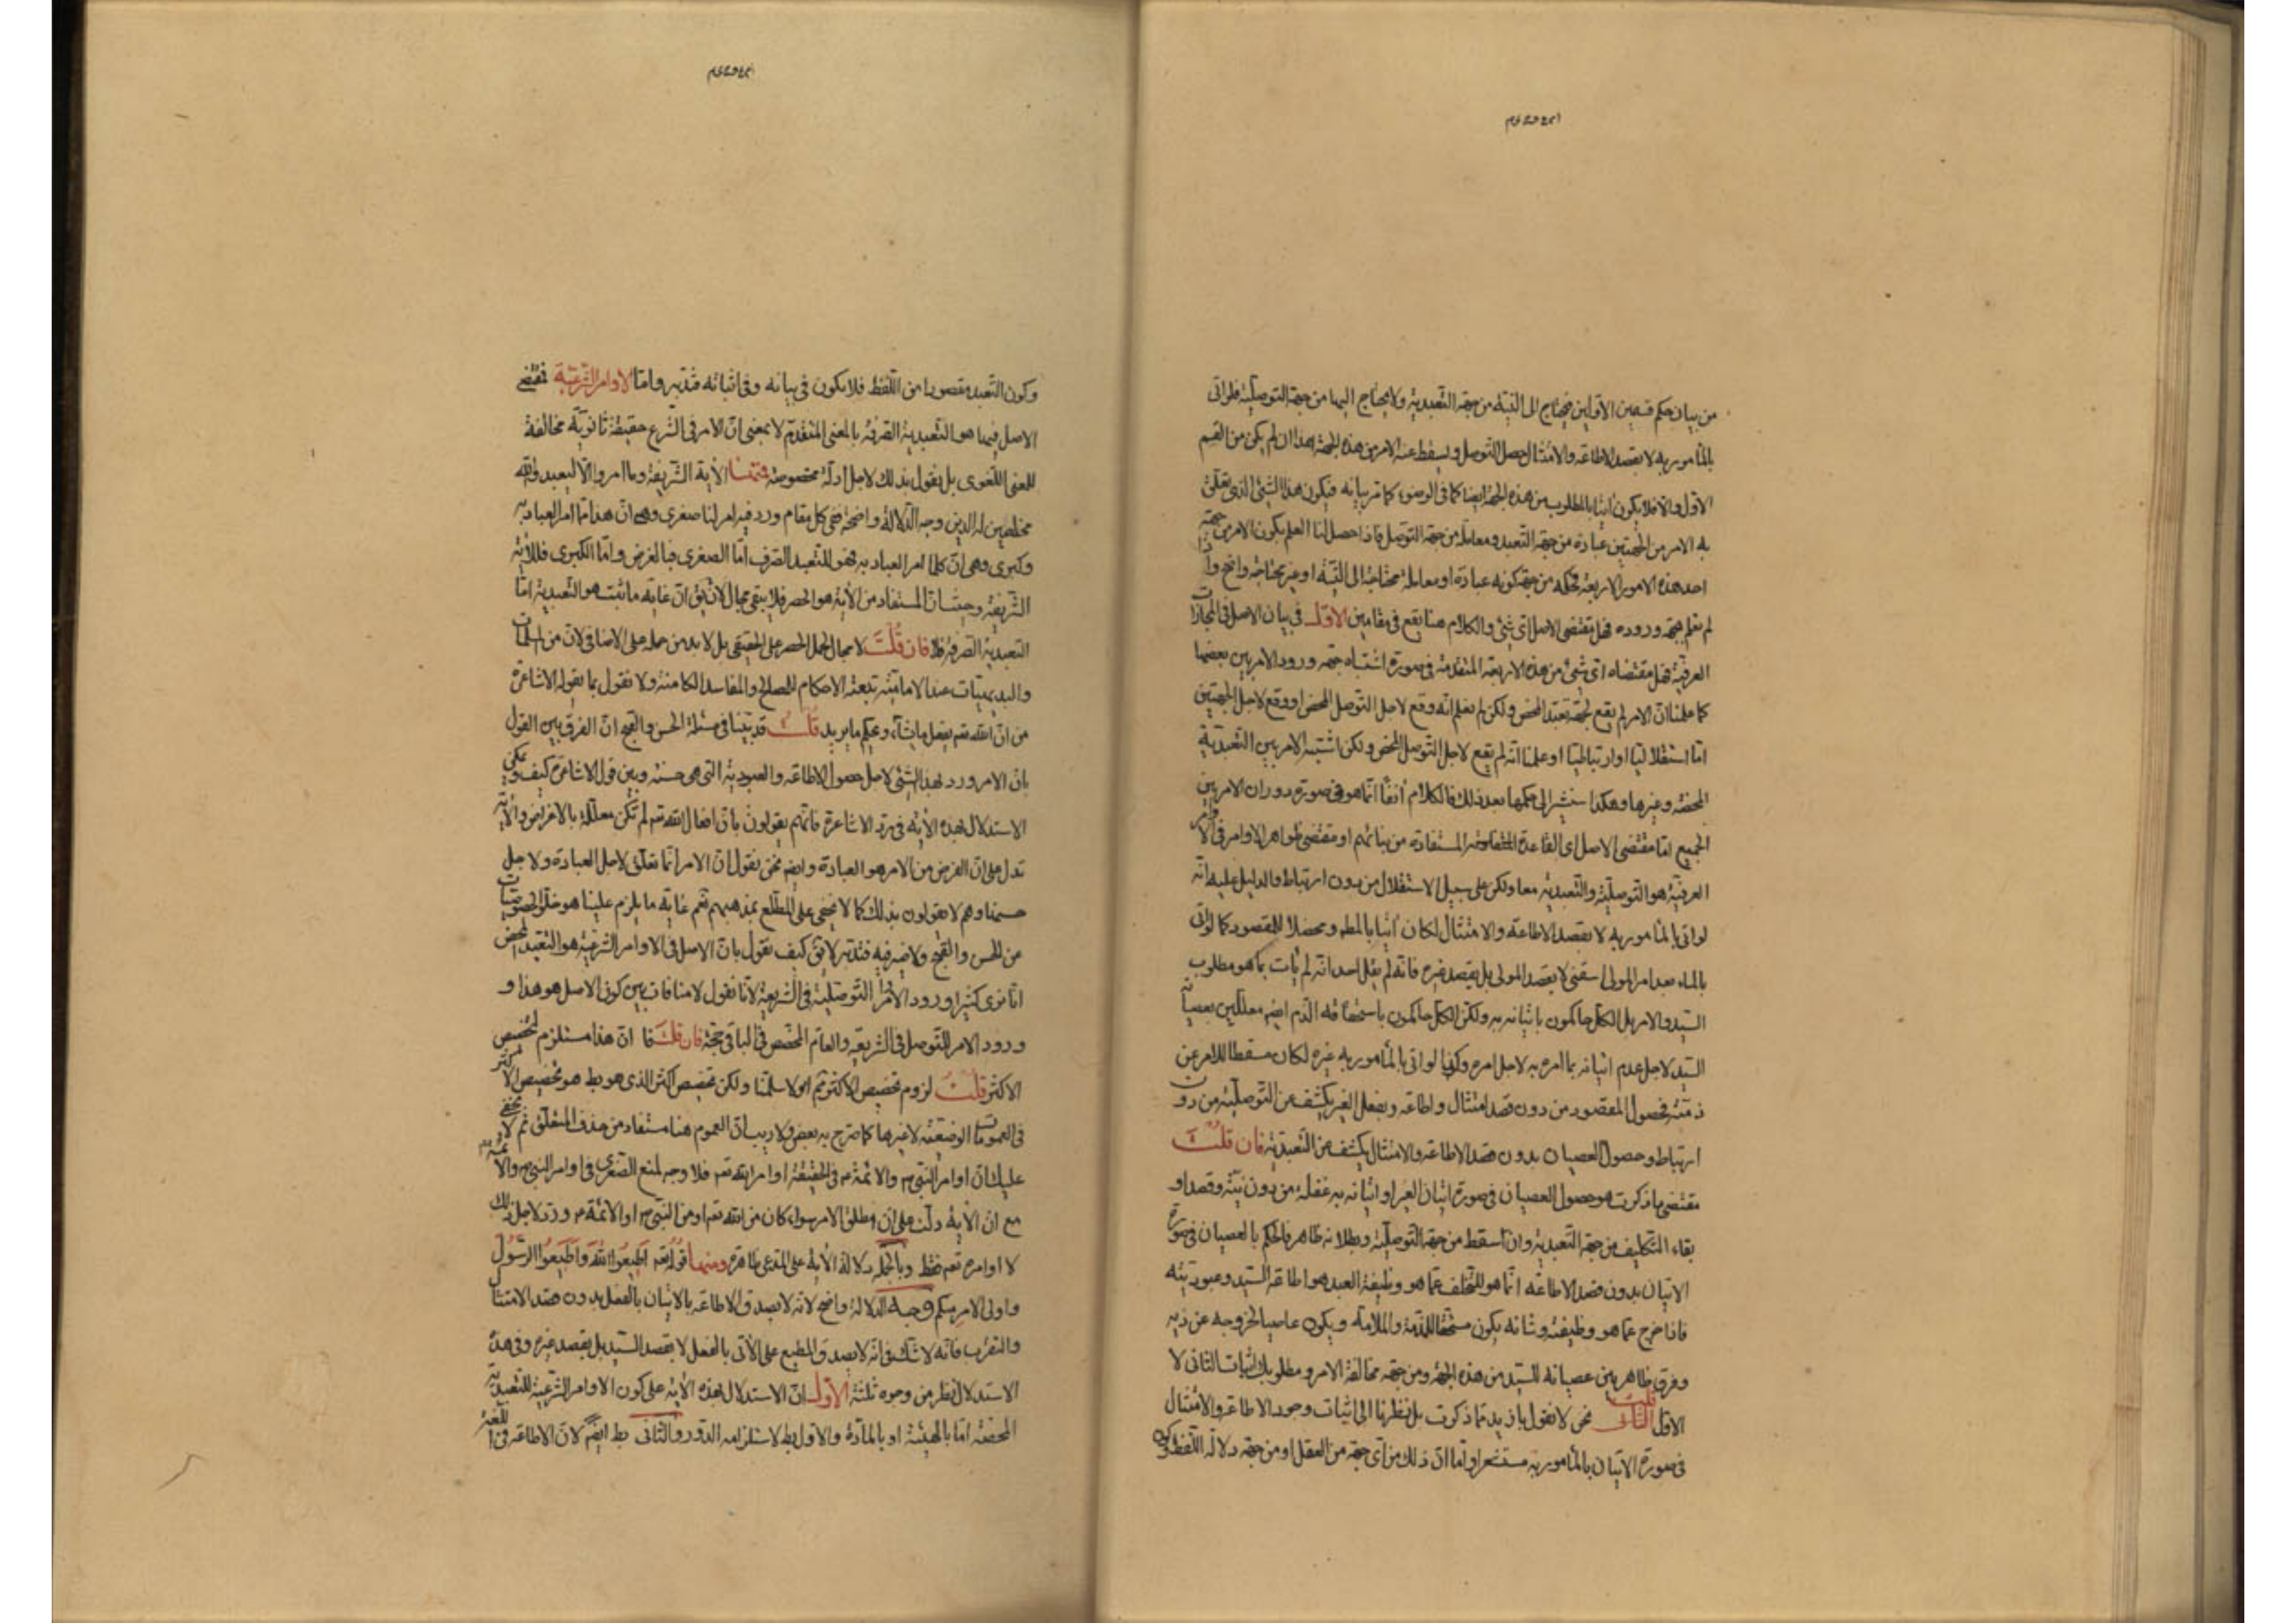 من بيان حكم قسمين الاولين فيحتاج الى النية من جهة التعبدية ولا يحتاج اليها من جهة التوصلية فلو اتى
بالمأمور به لا بقصد الاطاعة والامتثال حصل التوصل ويسقط عنه الامر من هذه الجهة هذا ان لم يكن من القسم
الاول والا فلا يكون اتيا بالمطلوب من هذه الجهة ايضا كما في الوضوء كما مر بيانه فيكون هذا الشئ الذى تعلق
به الامر من الجهتين عبادة من جهة التعبد ومعاملة من جهة التوصل فاذا حصل لنا العلم بكون الامر من جهة
احد هذه الامور الاربعة فحكمه من جهة كونه عبادة او معاملة محتاجة الى النية او غير محتاجة واضح واذا
لم نعلم جهة وروده فهل مقتضى الاصل اى شئ والكلام هنا يقع في مقامين الاول في بيان الاصل في المحاورات
العرفية فهل مقتضاه اى شئ من هذه الاربعة المتقدمة في صورة اشتباه جهة ورود الامر بين بعضها
كما علمنا ان الامر لم يقع لجهة تعبد المحض ولكن لم نعلم انه وقع لاجل التوصل المحض او وقع لاجل الجهتين
اما استقلاليا او ارتباطيا او علمنا انه لم يقع لاجل التوصل المحض ولكن اشتبه الامر بين التعبدية
المحضة وغيرها وهكذا سنشير الى حكمها بعد ذلك فالكلام آنفا انما هو في صورة دوران الامر بين
الجميع اما مقتضى الاصل اى القاعدة المستفادة من بنائهم او مقتضى ظواهر الاوامر في الاوامر
العرفية هو التوصلية والتعبدية معا ولكن على سبيل الاستقلال من بدون ارتباط والدليل عليه انه
لو اتى بالمأمور به لا بقصد الاطاعة والامتثال لكان آتيا بالمط ومحصلا للمقصود كما لو اتى
بالماء بعد امر المولى اسقنى لا بقصد المولى بل بقصد غيره فانه لم يقل احد انه لم يأت بما هو مطلوب
السيد والامر بل الكل حاكمون باتيانه به ولكن الكل حاكمون باستحقاقه الذم ايضم معللين بعصيانه
السيد لاجل عدم اتيانه بما امره به لاجل امره وكذا لو اتى بالمأمور به غيره لكان مسقطا للامر عن
ذمته فحصول المقصود من دون قصد امتثال واطاعة وبفعل الغير يكشف عن التوصلية من دون
ارتباط وحصول العصيان بدون قصد الاطاعة والامتثال يكشف عن التعبدية فان قلت
مقتضى ما ذكرت هو حصول العصيان في صورة اتيان الغير او اتيانه به غفلة من دون نية وقصد او
بقاء التكليف من جهة التعبدية وان سقط من جهة التوصلية وبطلانه ظاهر فالحكم بالعصيان في صورة
الاتيان بدون قصد الاطاعة انما هو للتخلف عما هو وظيفة العبد هو اطاعة السيد وعبوديته
فاذا خرج عما هو وظيفته وشانه يكون مستحقا للمذمة والملامة ويكون عاصيا لخروجه عن زيه
وفرق ظاهر بين عصيانه للسيد من هذه الجهة ومن جهة مخالفة الامر ومطلوبك اثبات الثانى لا
الاول قلت نحن لا نقول بازيد مما ذكرت بل نظرنا الى اثبات وجود الاطاعة والامتثال
في صورة الاتيان بالمأمور به مستشعرا واما ان ذلك من اى جهة من العقل او من جهة دلالة اللفظ وكون
وكون التعبد مقصودا من اللفظ فلا يكون في بيانه وفي اثباته فتدبر واما الاوامر الشرعية فمقتضى
الاصل فيها هو التعبدية الصرفة بالمعنى المتقدم لا بمعنى ان الامر في الشرع حقيقة ثانوية مخالفة
للمعنى اللغوى بل نقول بذلك لاجل ادلة مخصوصة فمنها الآية الشريفة وما امروا الا ليعبدوا الله
مخلصين له الدين وجه الدلالة واضحة ففى كل مقام ورد فيه امر لنا صغرى وهى ان هذا ما امر العباد به
وكبرى وهى ان كلما امر العباد به فهو للتعبد الصرف اما الصغرى فبالفرض واما الكبرى فللآية
الشريفة وحيث ان المستفاد من الآية هو الحصر فلا يبقى مجال لان يق ان غاية ما ثبت هو التعبدية اما
التعبدية الصرفة فلا فان قلت لا مجال لحمل الحصر على الحقيقى بل لا بد من حمله على الاضافى لان من المسلمات
والبديهيات عند الامامية تبعية الاحكام للمصالح والمفاسد الكامنة ولا نقول بما يقوله الاشاعرة
من ان الله تعم يفعل ما يشاء ويحكم ما يريد قلت قد بينا في مسئلة الحسن والقبح ان الفرق بين القول
بان الامر ورد لهذا الشئ لاجل حصول الاطاعة والعبودية التى هى حسنة وبين قول الاشاعرة كيف ويمكن
الاستدلال بهذه الآية في رد الاشاعرة فانهم يقولون بان افعال الله تعم لم تكن معللة بالاغراض والآية
تدل على ان الغرض من الامر هو العبادة وايضم نحن نقول ان الامر انما تعلق لاجل العبادة ولاجل
حسنها وهم لا يقولون بذلك كما لا يخفى على المطلع بمذهبهم نعم غاية ما يلزم علينا هو خلو الخصوصيات
من الحسن والقبح ولا ضير فيه فتدبر لا يق كيف نقول بان الاصل في الاوامر الشرعية هو التعبد المحض
انا نرى كثيرا ورود الاوامر التوصلية في الشريعة لانا نقول لا منافات بين كون الاصل هو هذا و
ورود الامر للتوصل في الشريعة والعام المخصص في الباقى حجة فان قلت ان هذا مستلزم لتخصيص
الاكثر قلت لزوم تخصيص الاكثر ثم اولا سلمنا ولكن تخصيص اكثر الذى هو بط هو تخصيص الاكثر
في العمومات الوضعية لا غيرها كما صرح به بعض ولا ريب ان العموم هنا مستفاد من حذف المتعلق ثم لا يخفى
عليك ان اوامر النبى ص والائمة ع في الحقيقة اوامر الله تعم فلا وجه لمنع الصغرى في اوامر النبى ص والائمة ع
مع ان الآية دلت على ان مطلق الامر سواء كان من الله تعم او من النبى ص او الائمة ع ورد لاجل ذلك
لا اوامره تعم فقط وبالجملة دلالة الآية على المدعى ظاهرة ومنها قوله تعم اطيعوا الله واطيعوا الرسول
واولى الامر منكم وجه الدلالة واضح لانه لا يصدق الاطاعة بالاتيان بالفعل بدون قصد الامتثال
والتقرب فانه لا شك في انه لا يصدق المطيع على الآتى بالفعل لا بقصد السيد بل بقصد غيره وفي هذا
الاستدلال نظر من وجوه ثلثة الاول ان الاستدلال بهذه الآية على كون الاوامر الشرعية للتعبدية
المحضة اما بالهيئة او بالمادة والاول بط لاستلزامه الدور والثانى بط ايضم لان الاطاعة في اللغة